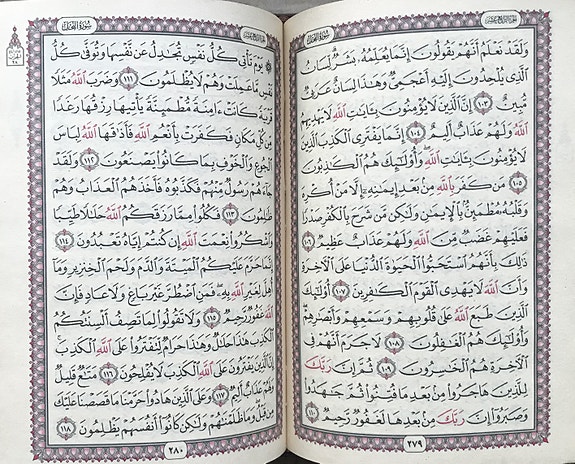 سورة النحل
الجزء الرابع عشر
ولقد نعلم أنهم يقولون إنما يعلمه بشر لسان
الذي يلحدون إليه أعجمي وهذا لسان عربي
مبين ١٠٣ إن الذين لا يؤمنون بـٔايت الله لا يهديهم
الله ولهم عذاب أليم ١٠٤ إنما يفتري الكذب الذين
لا يؤمنون بـٔايت الله وأولئك هم الكذبون
١٠٥ من كفر بالله من بعد إيمنه إلا من أكره
وقلبه مطمئن بالإيمن ولكن من شرح بالكفر صدرا
فعليهم غضب من الله ولهم عذاب عظيم ١٠٦
ذلك بأنهم استحبوا الحيوة الدنيا على الأخرة
وأن الله لا يهدي القوم الكفرين ١٠٧ أولئك
الذين طبع الله على قلوبهم وسمعهم وأبصرهم
وأولئك هم الغفلون ١٠٨ لا جرم أنهم في
الأخرة هم الخسرون ١٠٩ ثم إن ربك
للذين هاجروا من بعد ما فتنوا ثم جهدوا
وصبروا إن ربك من بعدها لغفور رحيم ١١٠
٢٧٩
سورة النحل
الجزء الرابع عشر
يوم تأتي كل نفس تجدل عن نفسها وتوفى كل
نفس ما عملت وهم لا يظلمون ١١١ وضرب الله مثلا
قرية كانت ءامنة مطمئنة يأتيها رزقها رغدا
من كل مكان فكفرت بأنعم الله فأذقها الله لباس
الجوع والخوف بما كانوا يصنعون ١١٢ ولقد
جاءهم رسول منهم فكذبوه فأخذهم العذاب وهم
ظلمون ١١٣ فكلوا مما رزقكم الله حللا طيبا
واشكروا نعمت الله إن كنتم إياه تعبدون ١١٤
إنما حرم عليكم الميتة والدم ولحم الخنزير وما
أهل لغير الله به فمن اضطر غير باغ ولا عاد فإن
الله غفور رحيم ١١٥ ولا تقولوا لما تصف ألسنتكم
الكذب هذا حلل وهذا حرام لتفتروا على الله الكذب
إن الذين يفترون على الله الكذب لا يفلحون ١١٦ متع قليل
ولهم عذاب أليم ١١٧ وعلى الذين هادوا حرمنا ما قصصنا عليك
من قبل وما ظلمنهم ولكن كانوا أنفسهم يظلمون ١١٨
٢٨٠